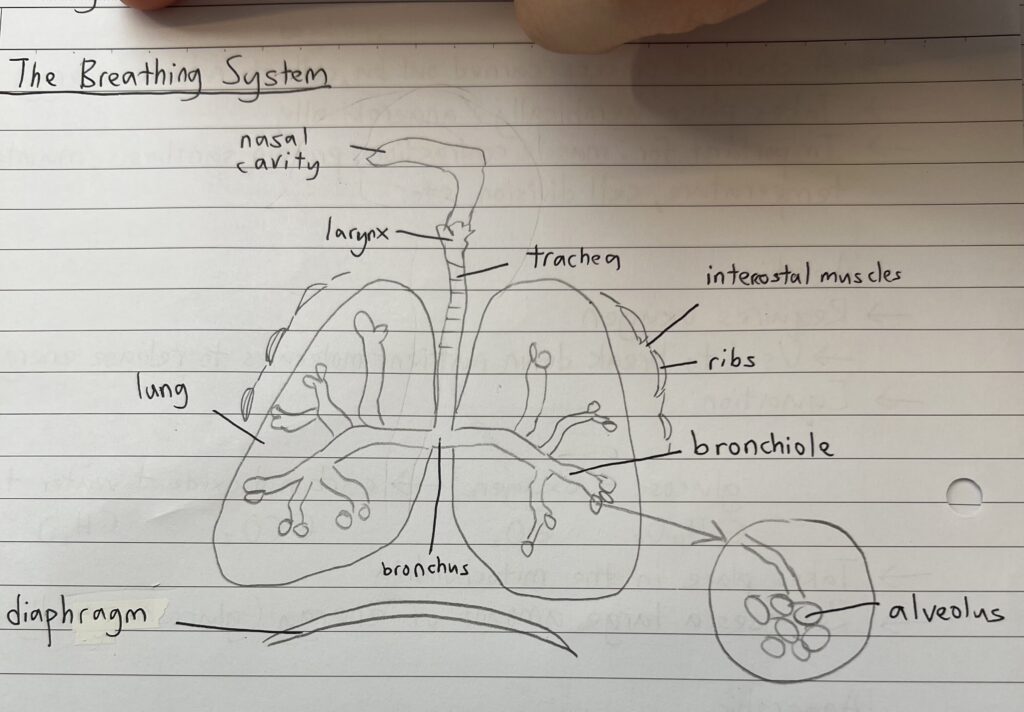 The Breathing System
nasal
cavity
larynx
trachea
interostal muscles
ribs
lung
bronchiole
bronchus
diaphragm
alveolus